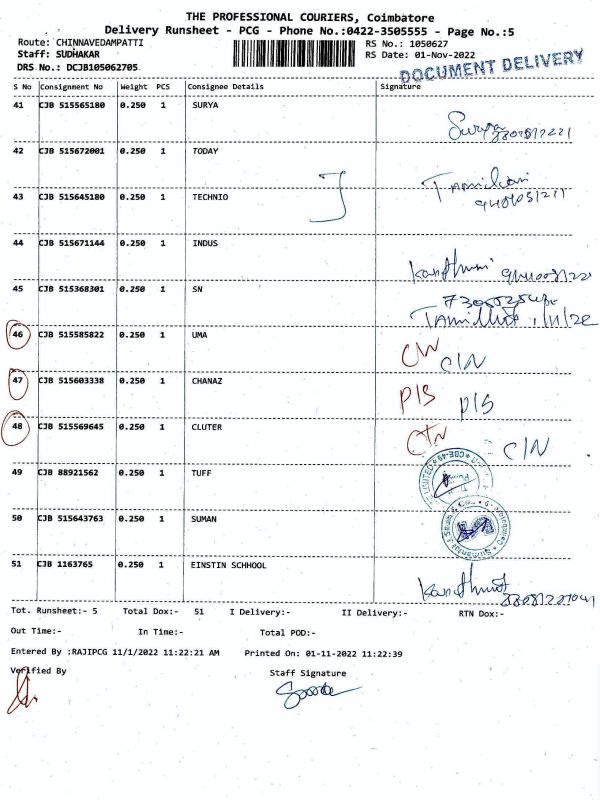 THE PROFESSIONAL COURIERS, Coimbatore
Delivery Runsheet - PCG - Phone No.:0422-3505555 - Page No.:5
Route: CHINNAVEDAMPATTI RS No.: 1050627
Staff: SUDHAKAR RS Date: 01-Nov-2022
DRS No.: DCJB105062705
DOCUMENT DELIVERY
S No Consignment No Weight PCS Consignee Details Signature
41 CJB 515565180 0.250 1 SURYA
Surya
42 CJB 515672001 0.250 1 TODAY
43 CJB 515645180 0.250 1 TECHNIO
44 CJB 515671144 0.250 1 INDUS
45 CJB 515368301 0.250 1 SN
46 CJB 515585822 0.250 1 UMA
C/N
47 CJB 515603338 0.250 1 CHANAZ
P/S P/S
48 CJB 515569645 0.250 1 CLUTER
C/N
49 CJB 88921562 0.250 1 TUFF
50 CJB 515643763 0.250 1 SUMAN
51 CJB 1163765 0.250 1 EINSTIN SCHHOOL
Tot. Runsheet:- 5 Total Dox:- 51 I Delivery:- II Delivery:- RTN Dox:-
Out Time:- In Time:- Total POD:-
Entered By :RAJIPCG 11/1/2022 11:22:21 AM Printed On: 01-11-2022 11:22:39
Verified By Staff Signature